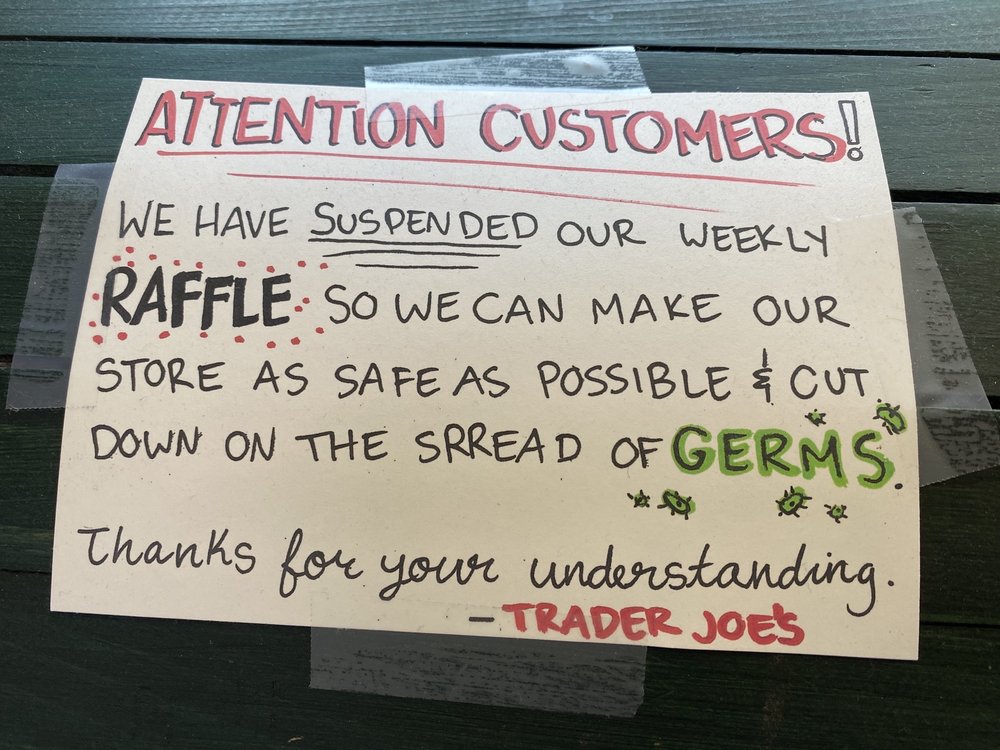 ATTENTION CUSTOMERS!
WE HAVE SUSPENDED OUR WEEKLY
RAFFLE SO WE CAN MAKE OUR
STORE AS SAFE AS POSSIBLE & CUT
DOWN ON THE SRREAD OF GERMS.
Thanks for your understanding.
- TRADER JOE'S